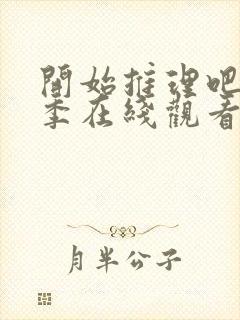 開始推理吧
季在綫觀看
月半公子